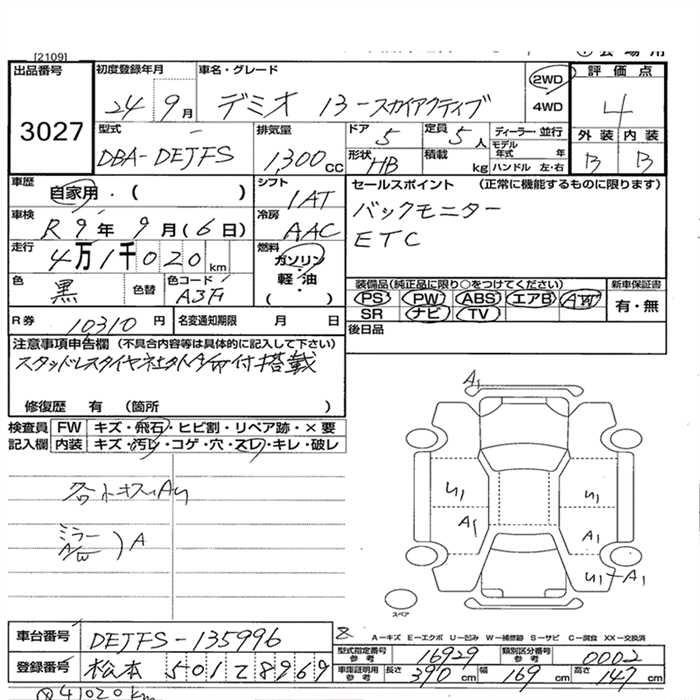 [2109]
出品番号 初度登録年月 車名・グレード 評価点
3027 24 9月 デミオ 13-スカイアクティブ 2WD 4WD 4
型式 排気量 ドア 定員 ディーラー・並行 外装 内装
DBA-DEJFS 1,300 CC 5 5人 モデル年式 年 B B
形状 HB 積載 kg ハンドル 左・右
車歴 自家用・( ) シフト 1AT セールスポイント (正常に機能するものに限ります)
車検 R9年9月(6日) 冷房 AAC バックモニター
走行 4万1千020km 燃料 ガソリン・軽油 ( ) ETC
色 黒 色替 色コード A3F
装備品(純正品に限り○をつけてください) 新車保証書
PS PW ABS エアB AW 有・無
SR ナビ TV
R券 10310円 名変通知期限 月 日 後日品
注意事項申告欄 (不具合内容等は具体的に記入して下さい)
搭載
修復歴 有 (箇所 )
検査員 FW キズ・飛石・ヒビ割・リペア跡・×要
記入欄 内装 キズ・汚レ・コゲ・穴・スレ・キレ・破レ
A1
U1 U1
A1 A1
ミラー
A/W )A
U1-A1
スペア
A-キズ E-エクボ U-凹み W-補修跡 S-サビ C-腐食 XX-交換済
車台番号 DEJFS-135996
型式指定番号 参考 16929 類別区分番号 参考 0002
登録番号 松本 501 2 8969
車庫証明用 参考 長さ 390cm 幅 169cm 高さ 147cm
41020km